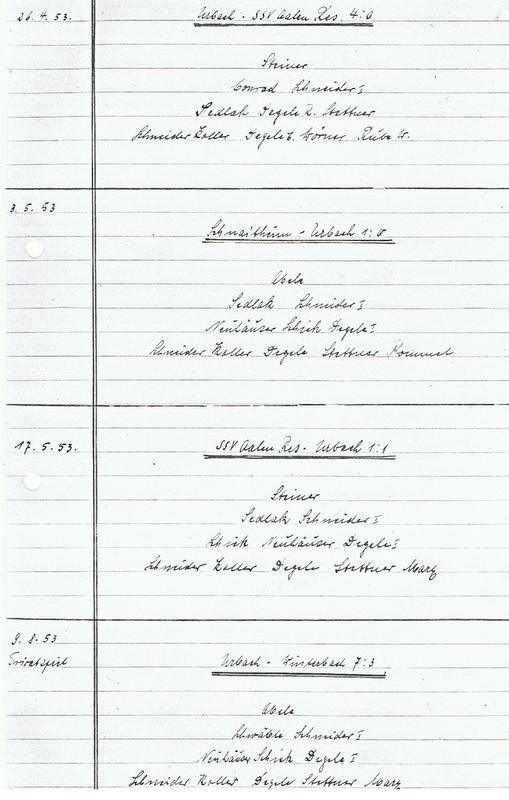 26.4.53.
Urbach - SSV Aalen Res. 4:0
Steiner
Conrad Schneider I
Sedlak Degele R. Stettner
Schneider Zoller Degele E. Wörner Rube W.
3.5.53
Schnaitheim - Urbach 1:0
Abele
Sedlak Schneider I
Neuhäuser Schiek Degele I
Schneider Zoller Degele Stettner Rommel
17.5.53.
SSV Aalen Res - Urbach 1:1
Steiner
Sedlak Schneider I
Schiek Neuhäuser Degele I
Schneider Zoller Degele Stettner Marz
9.8.53
Privatspiel
Urbach - Winterbach 7:3
Abele
Schwäble Schneider I
Neuhäuser Schiek Degele I
Schneider Zoller Degele Stettner Marz